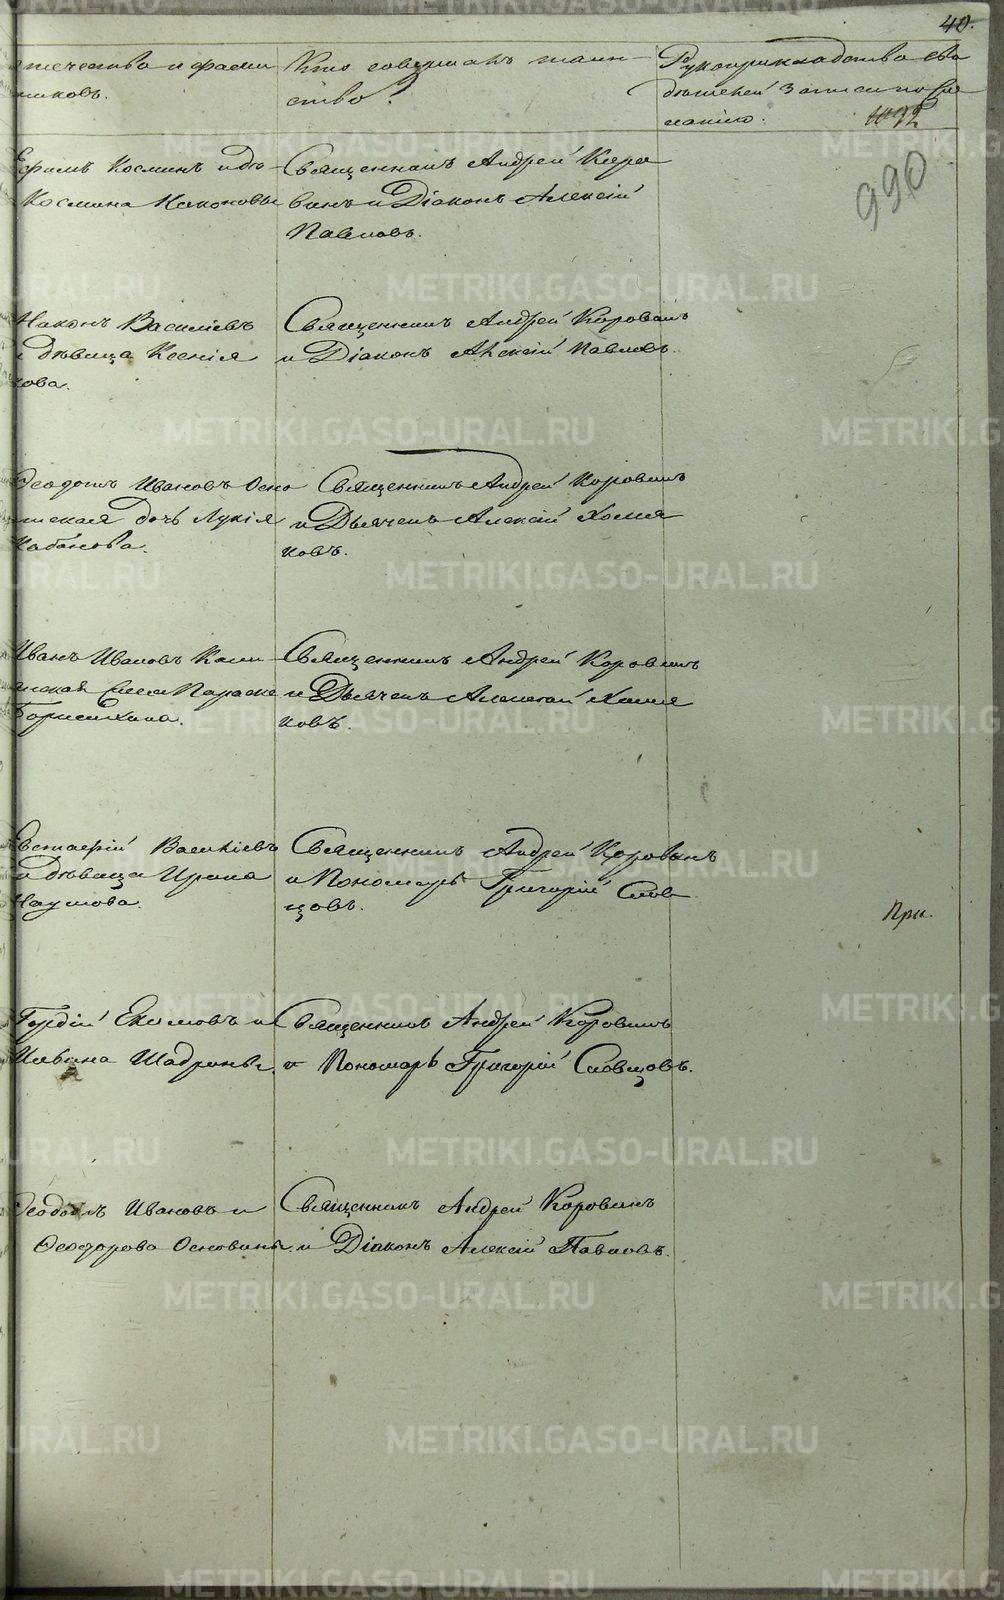 40.
отчество и фами
ликовъ.
Кто совершалъ таин-
ство?
Рукоприкладство сви
дѣтелей записи по же
ланію.
990
Ефимъ Косминъ и дѣ-
Космина Наконовы
Священникъ Андрей Коро
винъ и Діаконъ Алексій
Павловъ.
Наконъ Василіевъ
и дѣвица Ксенія
кова.
Священникъ Андрей Коровинъ
и Діаконъ Алексій Павловъ.
Ѳеодотъ Ивановъ Осно
шская дочь Лукія
Кабанова.
Священникъ Андрей Коровинъ
и Дьячекъ Алексій Холмя
ковъ.
Иванъ Ивановъ Кали
нская Параске
Борисихина.
Священникъ Андрей Коровинъ
и Дьячекъ Алексій Холмя
ковъ.
Евстафій Василіевъ
и дѣвица Ирина
Наумова.
Священникъ Андрей Коровинъ
и Пономарь Григорій Слов
цовъ.
При.
Гордій Екимовъ и
Ильина Шадрины.
Священникъ Андрей Коровинъ
и Пономарь Григорій Словцовъ.
Ѳеодотъ Ивановъ и
Ѳеодорова Основины.
Священникъ Андрей Коровинъ
и Діаконъ Алексій Павловъ.
METRIKI.GASO-URAL.RU